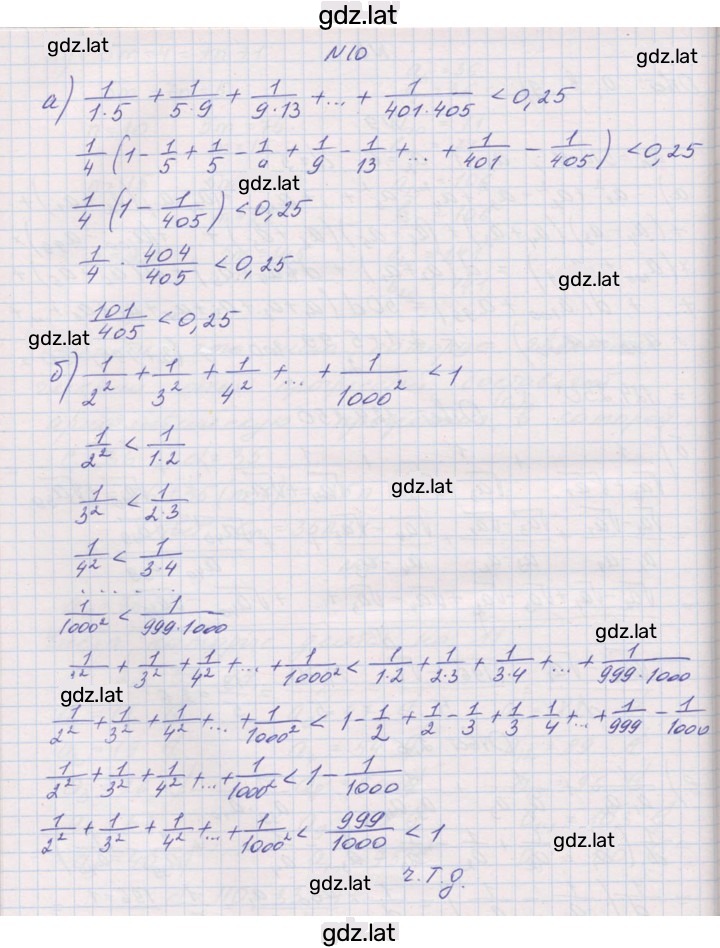 gdz.lat
gdz.lat
N10
gdz.lat
а) 1/(1·5) + 1/(5·9) + 1/(9·13) + ... + 1/(401·405) < 0,25
1/4 (1 - 1/5 + 1/5 - 1/9 + 1/9 - 1/13 + ... + 1/401 - 1/405) < 0,25
gdz.lat
1/4 (1 - 1/405) < 0,25
1/4 · 404/405 < 0,25
gdz.lat
101/405 < 0,25
gdz.lat
б) 1/2² + 1/3² + 1/4² + ... + 1/1000² < 1
1/2² < 1/(1·2)
gdz.lat
1/3² < 1/(2·3)
1/4² < 1/(3·4)
. . . . . . .
1/1000² < 1/(999·1000)
gdz.lat
1/2² + 1/3² + 1/4² + ... + 1/1000² < 1/(1·2) + 1/(2·3) + 1/(3·4) + ... + 1/(999·1000)
gdz.lat
1/2² + 1/3² + 1/4² + ... + 1/1000² < 1 - 1/2 + 1/2 - 1/3 + 1/3 - 1/4 + ... + 1/999 - 1/1000
1/2² + 1/3² + 1/4² + ... + 1/1000² < 1 - 1/1000
1/2² + 1/3² + 1/4² + ... + 1/1000² < 999/1000 < 1
gdz.lat
ч.т.д.
gdz.lat
gdz.lat